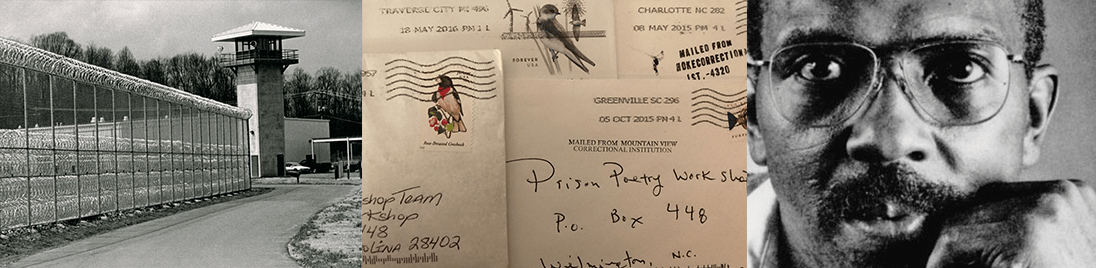 TRAVERSE CITY MI 496
18 MAY 2016 PM 1 L
FOREVER
USA
CHARLOTTE NC 282
08 MAY 2015 PM 4 L
MAILED FROM
HOKECORRECTION
-4320
Rose-Breasted Grosbeak
shop Team
kshop
48
olina 28402
GREENVILLE SC 296
05 OCT 2015 PM 4 L
MAILED FROM MOUNTAIN VIEW
CORRECTIONAL INSTITUTION
Prison Poetry Work Sho
P.O. Box 448
Wilmington, N.C.